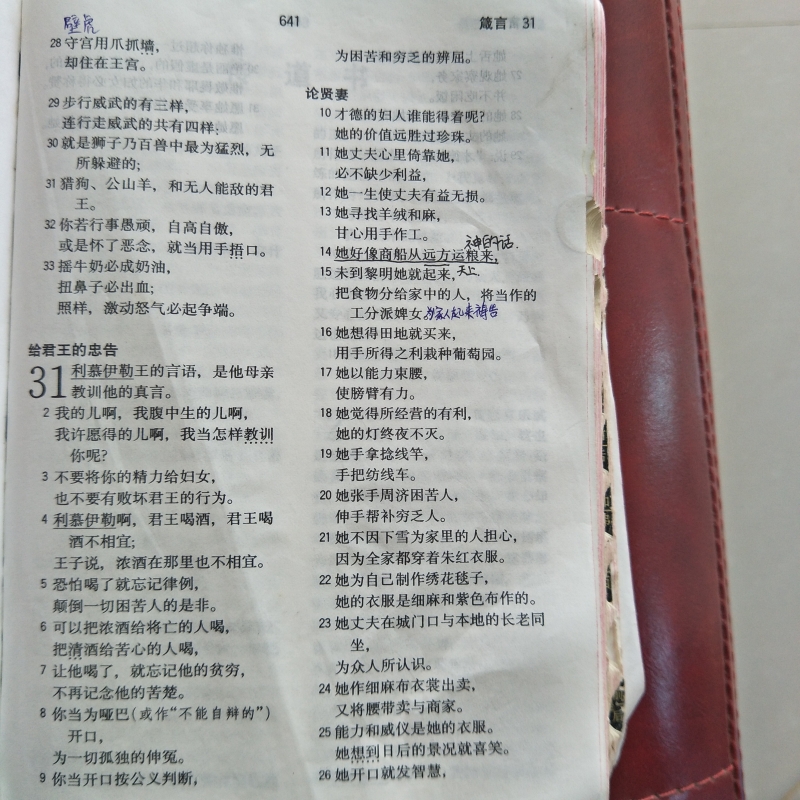 641
箴言 31
壁虎
28 守宫用爪抓墙，
却住在王宫。
29 步行威武的有三样，
连行走威武的共有四样：
30 就是狮子乃百兽中最为猛烈，无
所躲避的；
31 猎狗、公山羊，和无人能敌的君
王。
32 你若行事愚顽，自高自傲，
或是怀了恶念，就当用手捂口。
33 摇牛奶必成奶油，
扭鼻子必出血；
照样，激动怒气必起争端。
给君王的忠告
31 利慕伊勒王的言语，是他母亲
教训他的真言。
2 我的儿啊，我腹中生的儿啊，
我许愿得的儿啊，我当怎样教训
你呢？
3 不要将你的精力给妇女，
也不要有败坏君王的行为。
4 利慕伊勒啊，君王喝酒，君王喝
酒不相宜；
王子说，浓酒在那里也不相宜。
5 恐怕喝了就忘记律例，
颠倒一切困苦人的是非。
6 可以把浓酒给将亡的人喝，
把清酒给苦心的人喝，
7 让他喝了，就忘记他的贫穷，
不再记念他的苦楚。
8 你当为哑巴(或作“不能自辩的”)
开口，
为一切孤独的伸冤。
9 你当开口按公义判断，
为困苦和穷乏的辨屈。
论贤妻
10 才德的妇人谁能得着呢？
她的价值远胜过珍珠。
11 她丈夫心里倚靠她，
必不缺少利益，
12 她一生使丈夫有益无损。
13 她寻找羊绒和麻，
甘心用手作工。
神的话.
14 她好像商船从远方运粮来，
15 未到黎明她就起来，天上.
把食物分给家中的人，将当作的
工分派婢女。家人起来祷告
16 她想得田地就买来，
用手所得之利栽种葡萄园。
17 她以能力束腰，
使膀臂有力。
18 她觉得所经营的有利，
她的灯终夜不灭。
19 她手拿捻线竿，
手把纺线车。
20 她张手周济困苦人，
伸手帮补穷乏人。
21 她不因下雪为家里的人担心，
因为全家都穿着朱红衣服。
22 她为自己制作绣花毯子，
她的衣服是细麻和紫色布作的。
23 她丈夫在城门口与本地的长老同
坐，
为众人所认识。
24 她作细麻布衣裳出卖，
又将腰带卖与商家。
25 能力和威仪是她的衣服。
她想到日后的景况就喜笑。
26 她开口就发智慧，